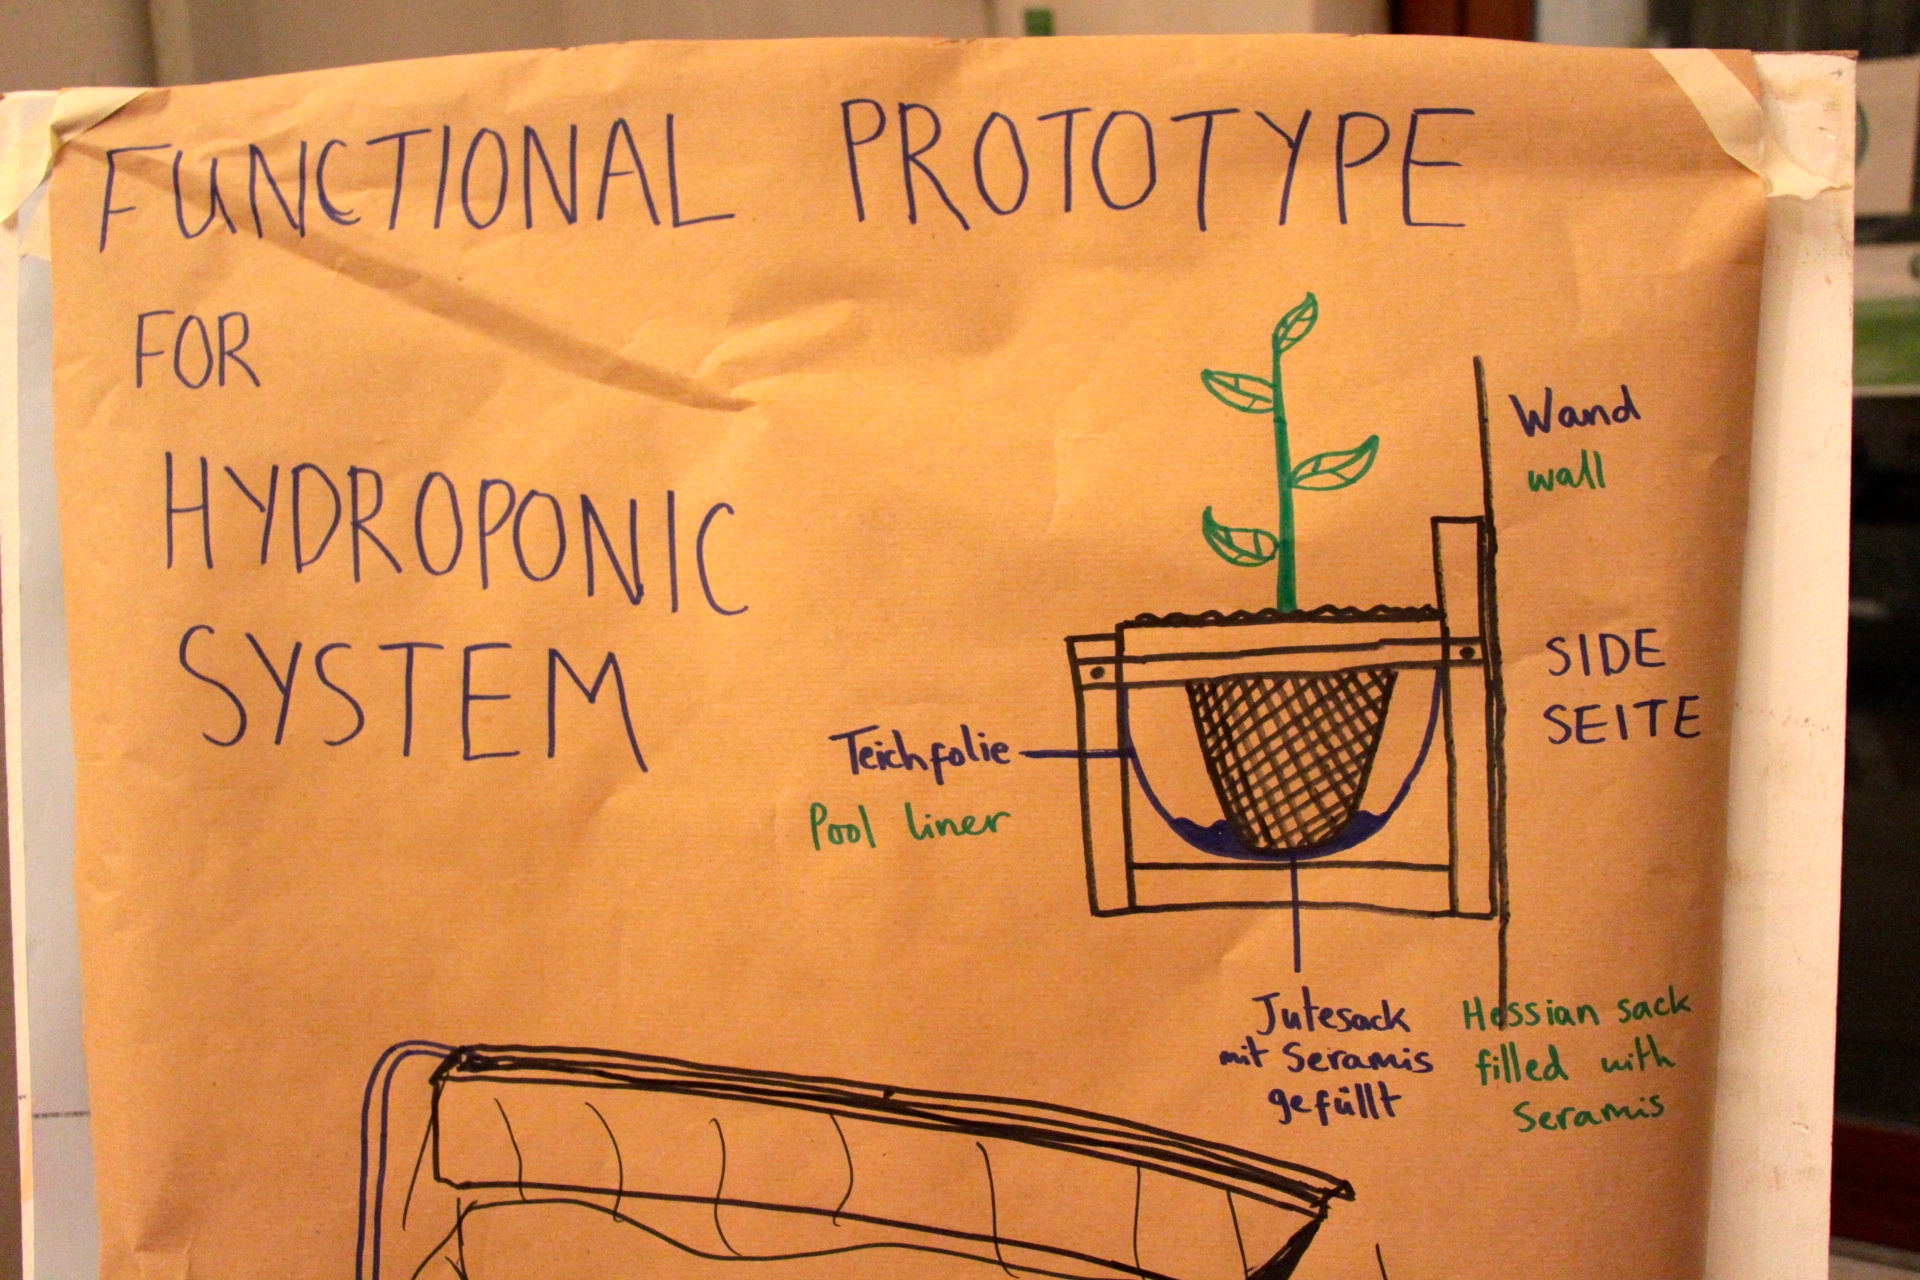 FUNCTIONAL PROTOTYPE
FOR
HYDROPONIC
SYSTEM
Wand
wall
SIDE
SEITE
Teichfolie
Pool liner
Jutesack
mit Seramis
gefüllt
Hessian sack
filled with
Seramis